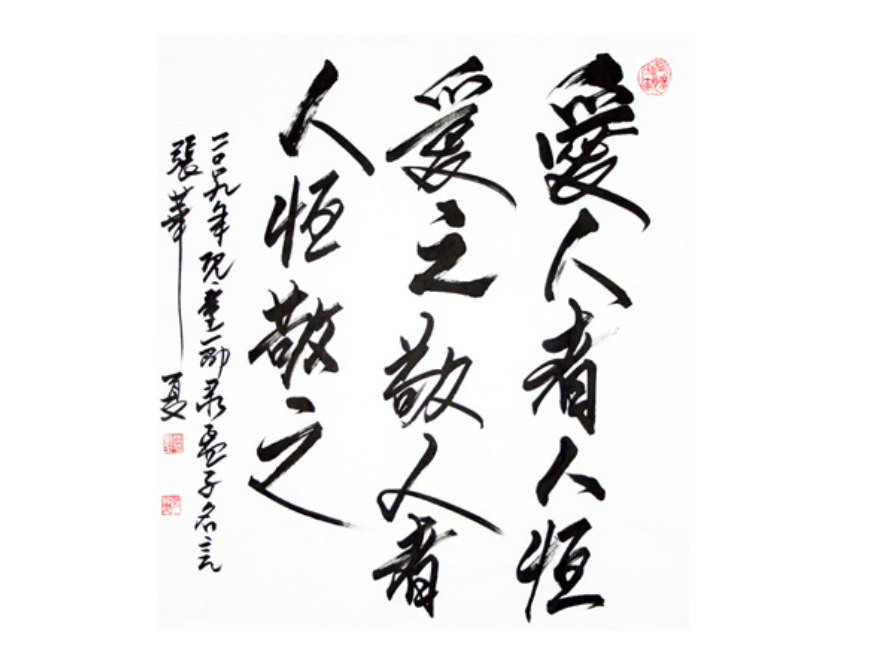 愛人者人恒
爱之敬人者
人恒敬之
二〇一九年
录孟子名言
張華夏